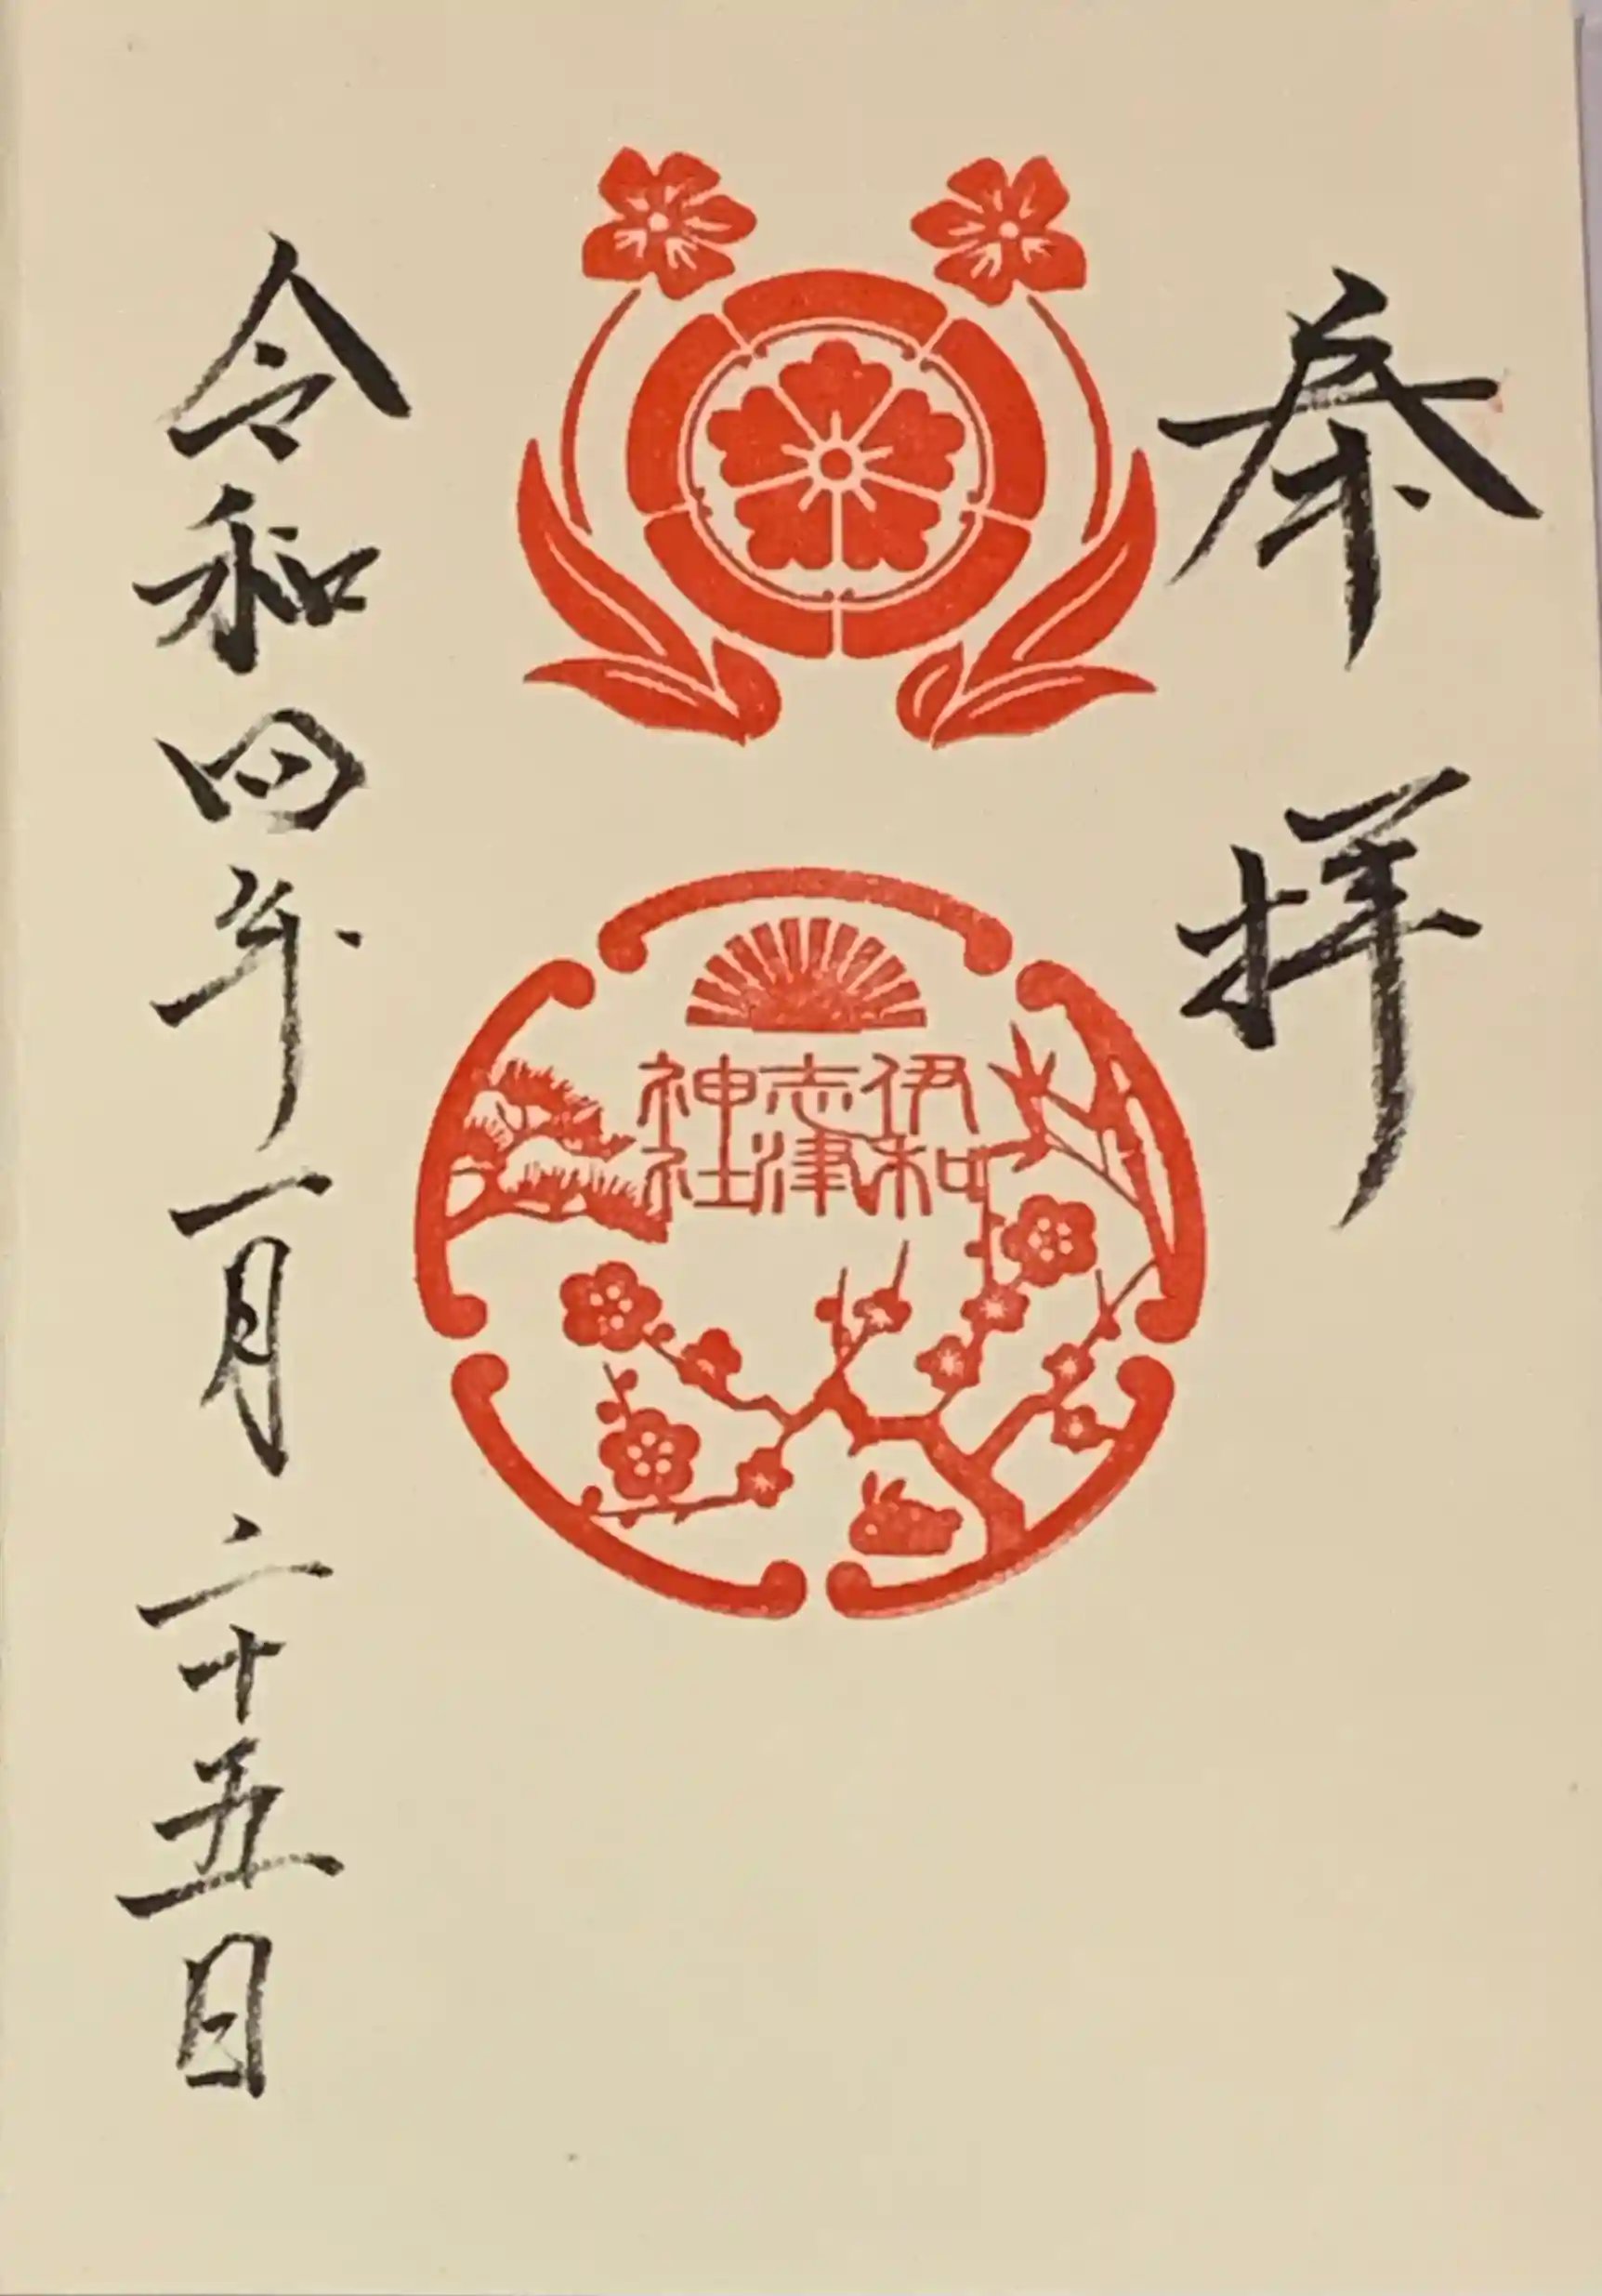 奉拝
伊和
志津
神社
令和四年一月二十五日